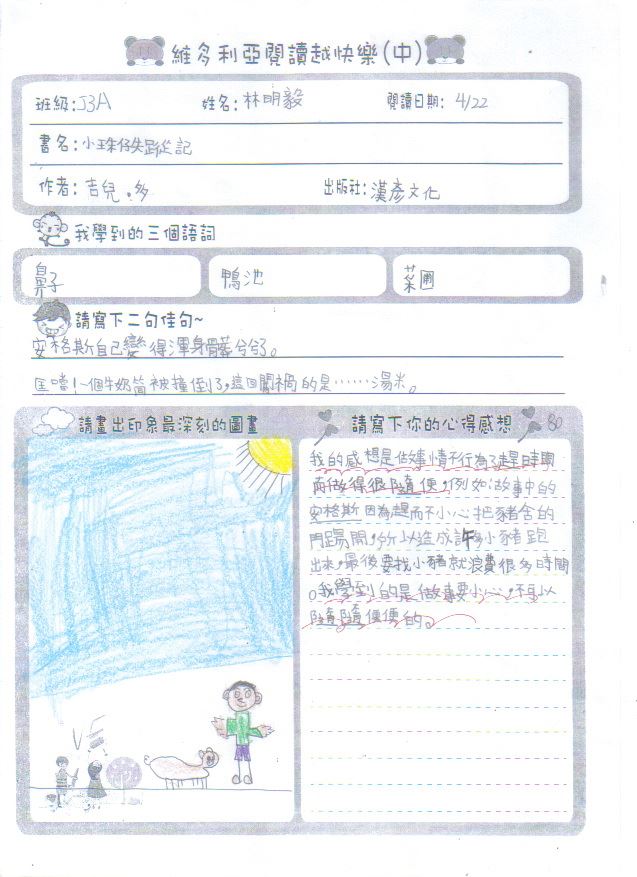 維多利亞閱讀越快樂(中)
班級:J3A 姓名:林明毅 閱讀日期: 4/22
書名:小珠仔失蹤記
作者:吉兒.多 出版社:漢彥文化
我學到的三個語詞
鼻子 鴨池 菜圃
請寫下二句佳句~
安格斯自己變得渾身髒兮兮了。
匡噹!一個牛奶筒被撞倒了,這回闖禍的是……湯米。
請畫出印象最深刻的圖畫
請寫下你的心得感想 80
我的感想是做事情不行為了趕時間
而做得很隨便,例如:故事中的
安格斯因為趕而不小心把豬舍的
門踢開,所以造成許多小豬跑
出來,最後要找小豬就浪費很多時間
。我學到的是做事要小心,不可以
隨隨便便的。